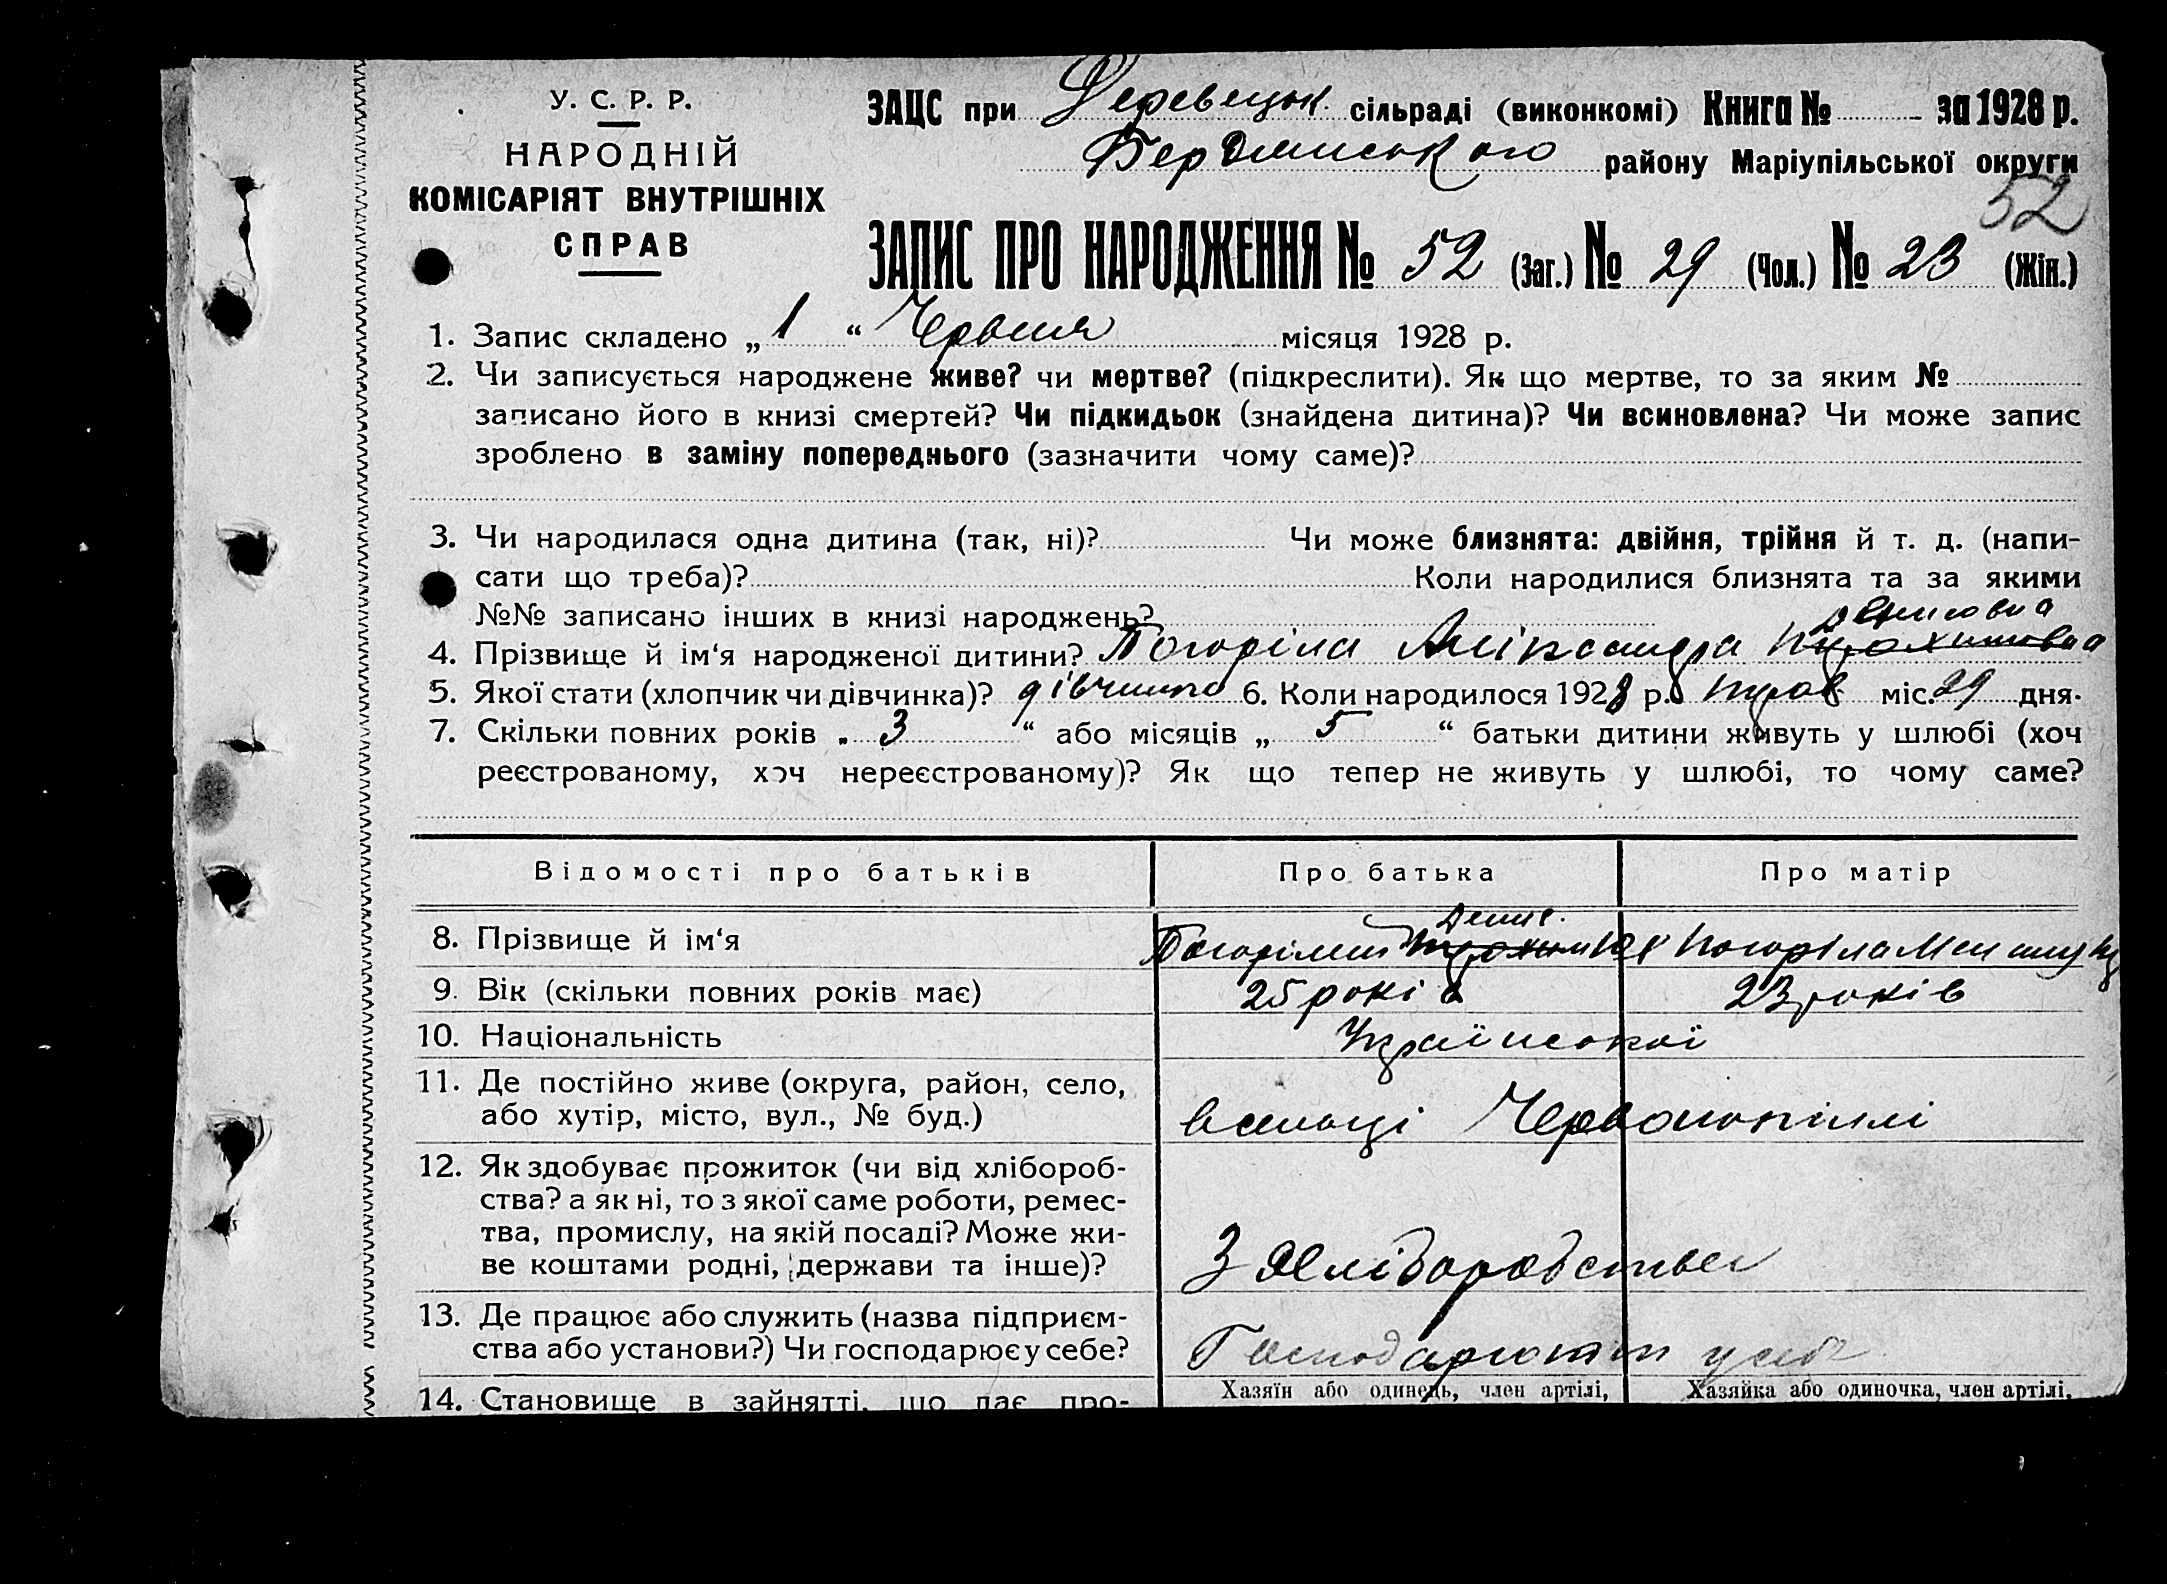 У. С. Р. Р.
НАРОДНІЙ
КОМІСАРІЯТ ВНУТРІШНІХ
СПРАВ
ЗАЦС при Деревецьк. сільраді (виконкомі) Книга № - за 1928 р.
Бердянського району Маріупільської округи
52
ЗАПИС ПРО НАРОДЖЕННЯ № 52 (Заг.) № 29 (Чол.) № 23 (Жін.)
1. Запис складено „ 1 “ Червня місяця 1928 р.
2. Чи записується народжене живе? чи мертве? (підкреслити). Як що мертве, то за яким №
записано його в книзі смертей? Чи підкидьок (знайдена дитина)? Чи всиновлена? Чи може запис
зроблено в заміну попереднього (зазначити чому саме)?
3. Чи народилася одна дитина (так, ні)? Чи може близнята: двійня, трійня й т. д. (напи-
сати що треба)? Коли народилися близнята та за якими
№№ записано інших в книзі народжень?
Денисовна
4. Прізвище й ім‘я народженої дитини? Погоріла Аліксандра Трохимовна
5. Якої стати (хлопчик чи дівчинка)? дівчинка 6. Коли народилося 1928 р. трав міс. 29 дня.
7. Скільки повних років „ 3 “ або місяців „ 5 “ батьки дитини живуть у шлюбі (хоч
реєстрованому, хоч нереєстрованому)? Як що тепер не живуть у шлюбі, то чому саме?
Відомості про батьків Про батька Про матір
Денис.
8. Прізвище й ім‘я Погорілий Трохим Погоріла
9. Вік (скільки повних років має) 25 років 23 років
10. Національність Української
11. Де постійно живе (округа, район, село,
або хутір, місто, вул., № буд.) в селищі Червонопіллі
12. Як здобуває прожиток (чи від хлібороб-
ства? а як ні, то з якої саме роботи, ремес-
тва, промислу, на якій посаді? Може жи-
ве коштами родні, держави та інше)? З Хліборобства
13. Де працює або служить (назва підприєм-
ства або установи?) Чи господарює у себе? Господарюють у себе
Хазяїн або одинець, член артілі, Хазяйка або одиночка, член артілі,
14. Становище в зайнятті, що дає про-